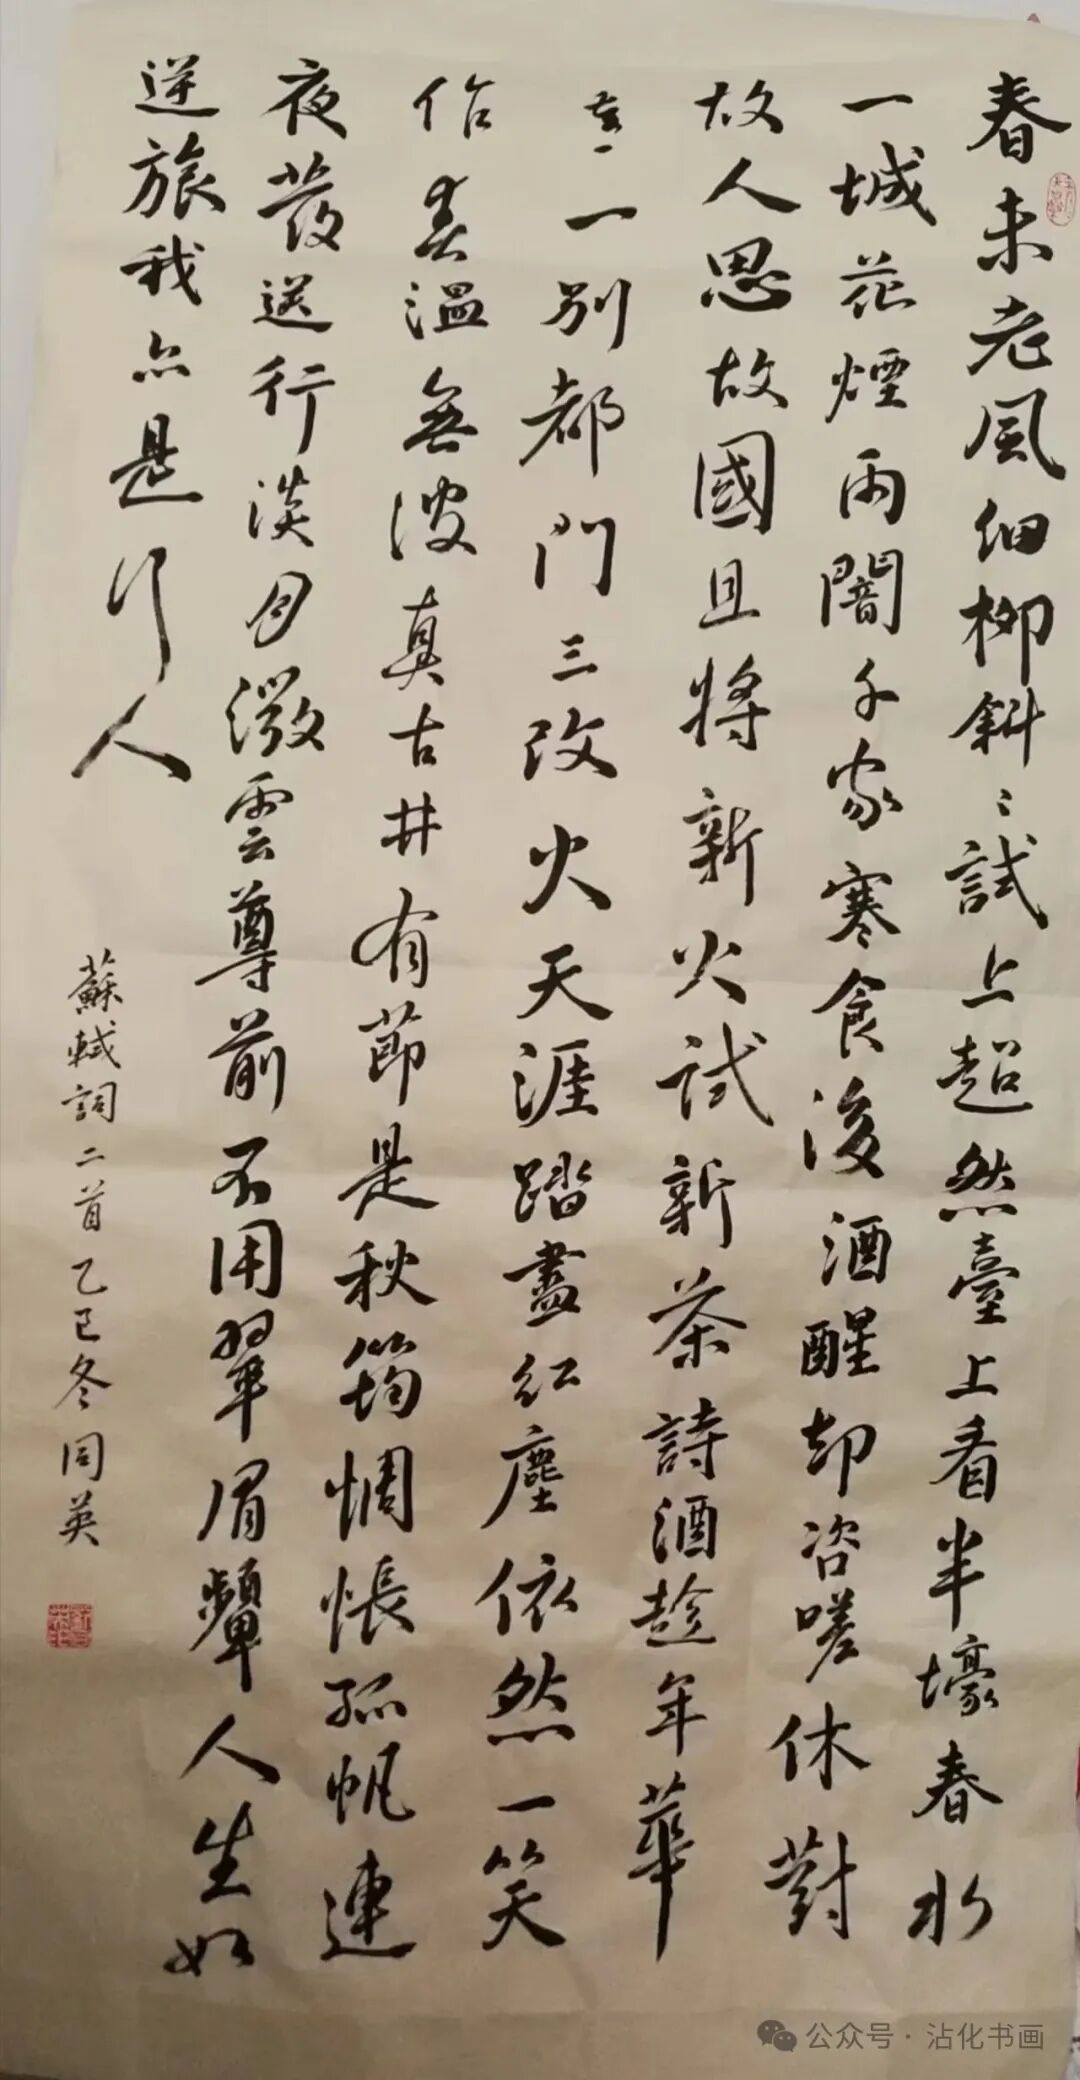 春未老風細柳斜〻試上超然臺上看半壕春水
一城花煙雨闇千家寒食後酒醒却咨嗟休對
故人思故國且將新火試新茶詩酒趁年華
一別都門三改火天涯踏盡紅塵依然一笑
作春溫無波真古井有節是秋筠惆悵孤帆連
夜發送行淡月微雲尊前不用翠眉顰人生如
逆旅我亦是行人
蘇軾詞二首乙巳冬同英
公众号·沾化书画